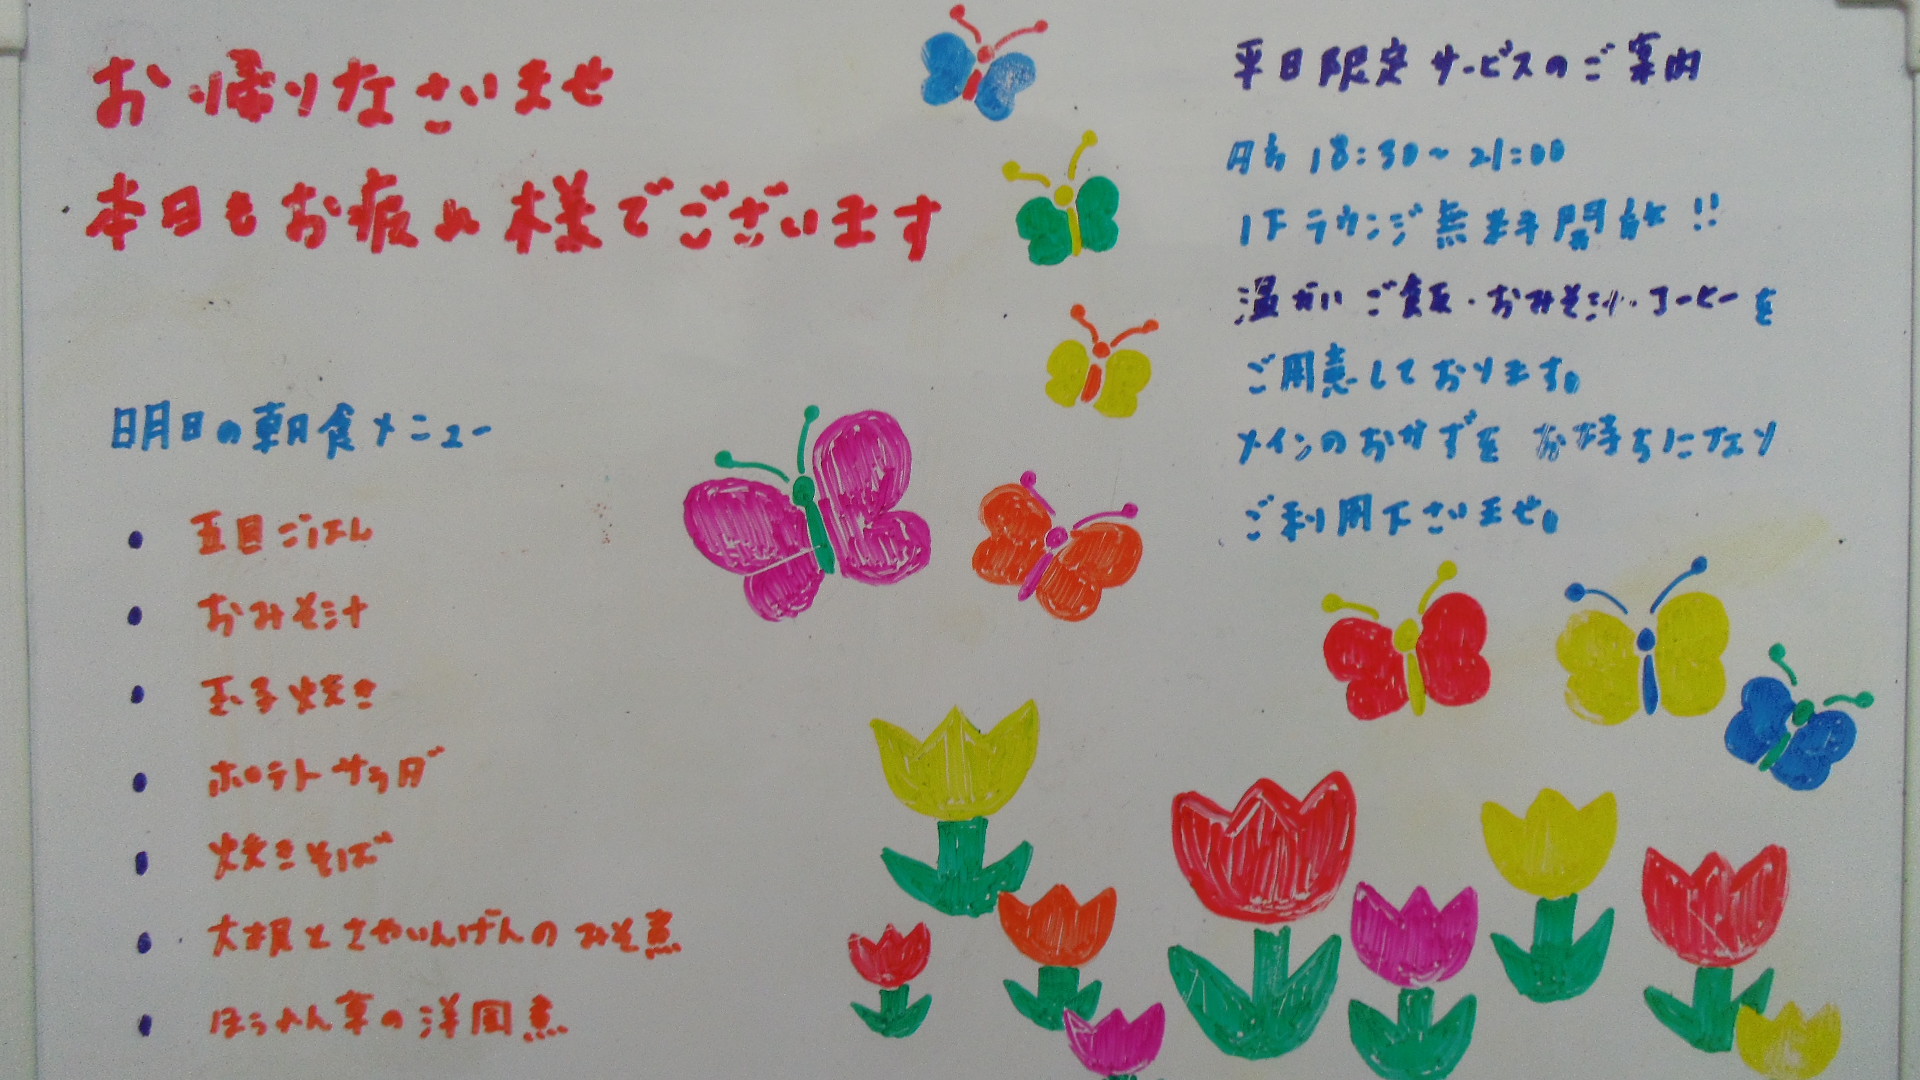 お帰りなさいませ
本日もお疲れ様でございます
明日の朝食メニュー
• 五目ごはん
• おみそ汁
• 玉子焼き
• ポテトサラダ
• 焼きそば
• 大根とさやいんげんのみそ煮
• ほうれん草の洋風煮
平日限定サービスのご案内
18:30~21:00
1Fラウンジ無料開放!!
温かいご飯・おみそ汁・コーヒーを
ご用意しております。
メインのおかずをお持ちになり
ご利用下さいませ。